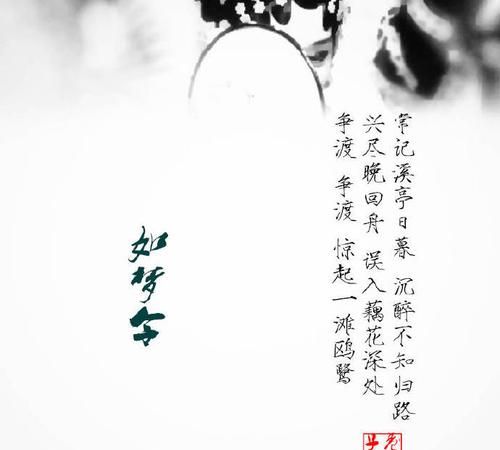 常记溪亭日暮 沉醉不知归路
兴尽晚回舟 误入藕花深处
争渡 争渡 惊起一滩鸥鹭
如梦令